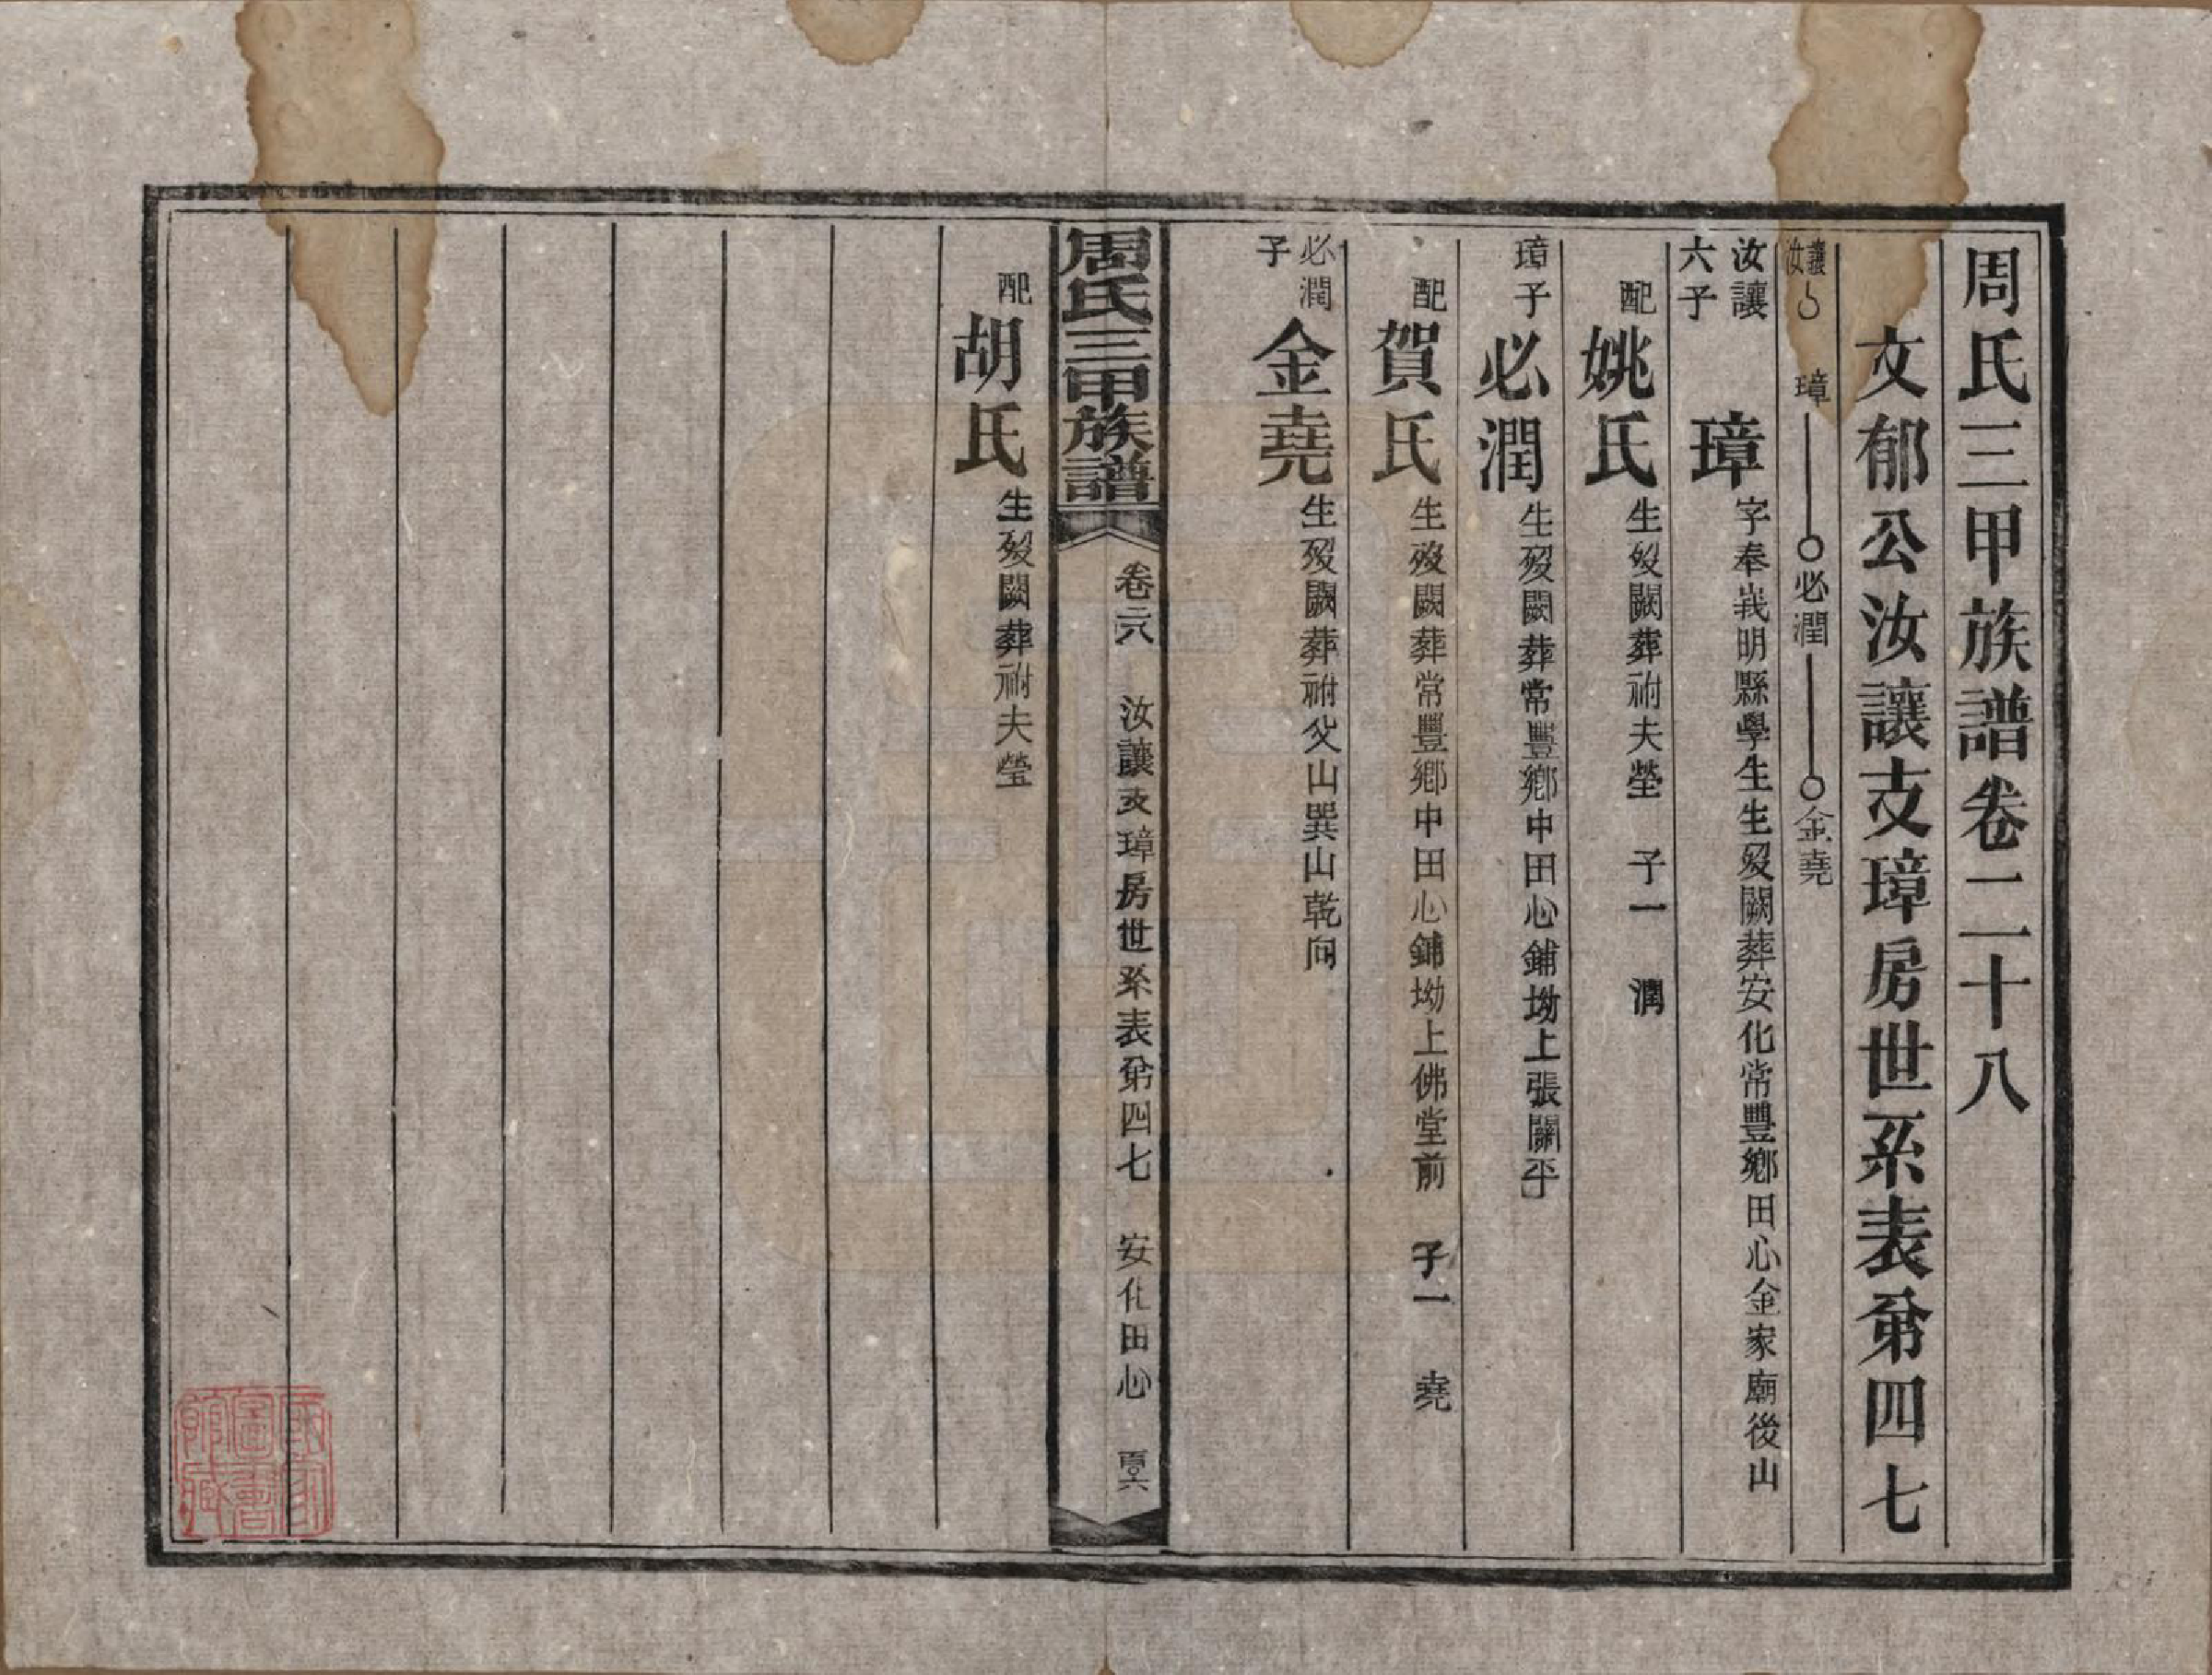 周氏三甲族譜卷二十八
文郁公汝讓支璋房世系表第四七
汝讓 璋 必潤 金堯
汝讓六子 璋 字奉峩明縣學生生歿闕葬安化常豐鄉田心金家廟後山
配姚氏 生歿闕葬祔夫塋 子一 潤
璋子必潤 生歿闕葬常豐鄉中田心鋪坳上張關平
配賀氏 生歿闕葬常豐鄉中田心鋪坳上佛堂前 子一 堯
必潤子金堯 生歿闕葬祔父山巽山乾向
周氏三甲族譜 卷二八 汝讓支璋房世系表第四七 安化田心
配胡氏 生歿闕葬祔夫塋
國家圖書館藏